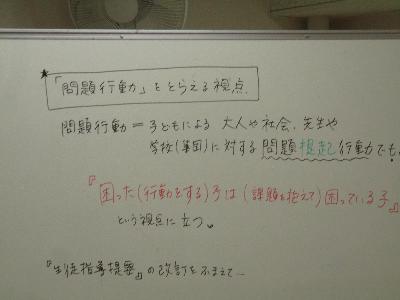 ★「問題行動」をとらえる視点
問題行動=子どもによる 大人や社会、先生や
学校(集団)に対する問題提起行動でも。
『困った(行動をする)子は(課題を抱えて)困っている子』
という視点に立つ。
『生徒指導提要』の改訂をふまえて…